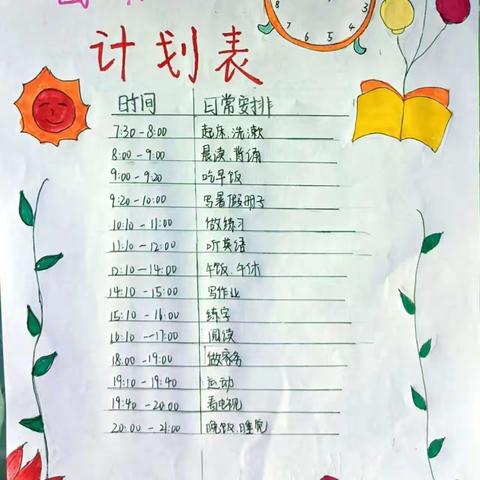 计划表
时间 日常安排
7:30-8:00 起床、洗漱
8:00-9:00 晨读、背诵
9:00-9:20 吃早饭
9:20-10:00 写暑假册子
10:10-11:00 做练习
11:10-12:00 听英语
12:10-14:00 午饭、午休
14:10-15:00 写作业
15:10-16:00 练字
16:10-17:00 阅读
18:00-19:00 做家务
19:10-19:40 运动
19:40-20:00 看电视
20:00-21:00 晚饭、睡觉